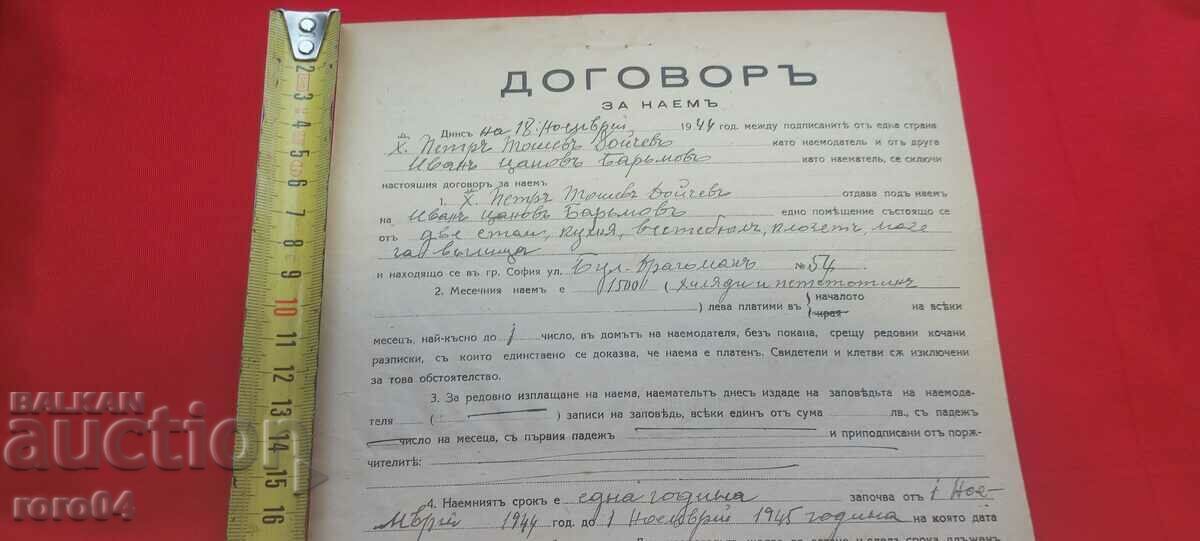 ДОГОВОРЪ
ЗА НАЕМЪ
Днисъ на 18 Ноемврий 1944 год. между подписанитѣ отъ една страна
Х. Петръ Тошевъ Дойчевъ като наемодатель и отъ друга
Иванъ Цановъ Баръмовъ като наематель, се сключи
настоящия договоръ за наемъ
1. Х. Петръ Тошевъ Дойчевъ отдава подъ наемъ
на Иванъ Цановъ Баръмовъ едно помѣщение състояще се
отъ две стаи, кухня, вестебюлъ, клозетъ, маза
и находящо се въ гр. София ул. Бул. Драгоманъ № 54.
2. Месечния наемъ е 1500 ( хиляди и петстотинъ
) лева платими въ началото края на всѣки
месецъ, най-късно до 1 число, въ домътъ на наемодателя, безъ покана, срещу редовни кочани
разписки, съ които единствено се доказва, че наема е платенъ. Свидетели и клетви сѫ изключени
за това обстоятелство.
3. За редовно изплащане на наема, наемательтъ днесъ издаде на заповѣдьта на наемода-
теля ( ) записи на заповѣдь, всѣки единъ отъ сума лв., съ падежъ
число на месеца, съ първия падежъ и приподписани отъ порѫ-
чителитѣ:
4. Наемниятъ срокъ е една година започва отъ 1 Ное-
мврий 1944 год. до 1 Ноемврий 1945 година на която дата
BALKAN
auction
roro04
2 3 4 5 6 7 8 9 10 11 12 13 14 15 16